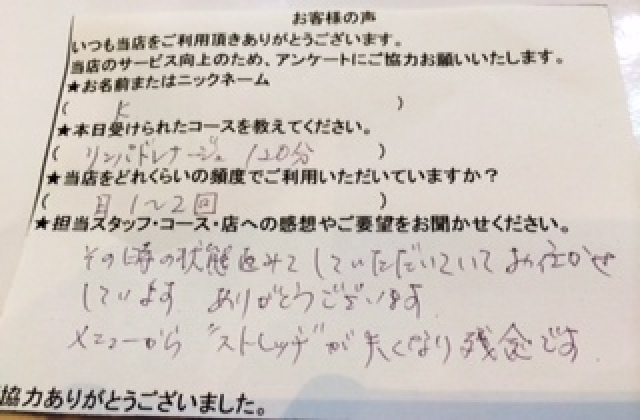 お客様の声
いつも当店をご利用頂きありがとうございます。
当店のサービス向上のため、アンケートにご協力お願いいたします。
★お名前またはニックネーム
( K )
★本日受けられたコースを教えてください。
( リンパドレナージュ 120分 )
★当店をどれくらいの頻度でご利用いただいていますか？
( 月1～2回 )
★担当スタッフ・コース・店への感想やご要望をお聞かせください。
その時の状態をみてしていただいていてお任せ
しています ありがとうございます
メニューから "ストレッチ" が失くなり残念です
協力ありがとうございました。